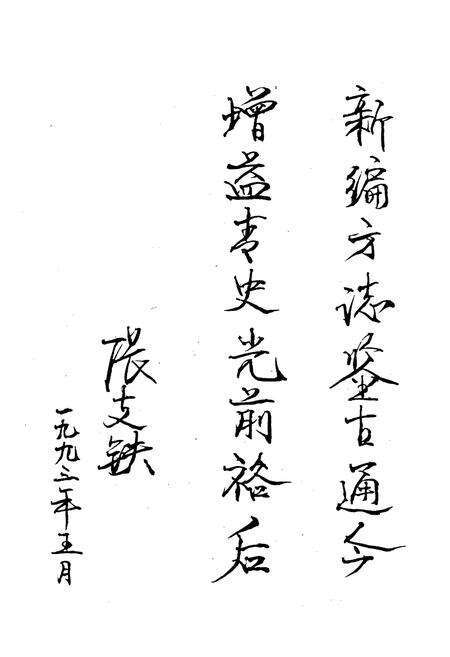 新编方誌鉴古通今
增益青史光前裕后
張支铁
一九九三年五月